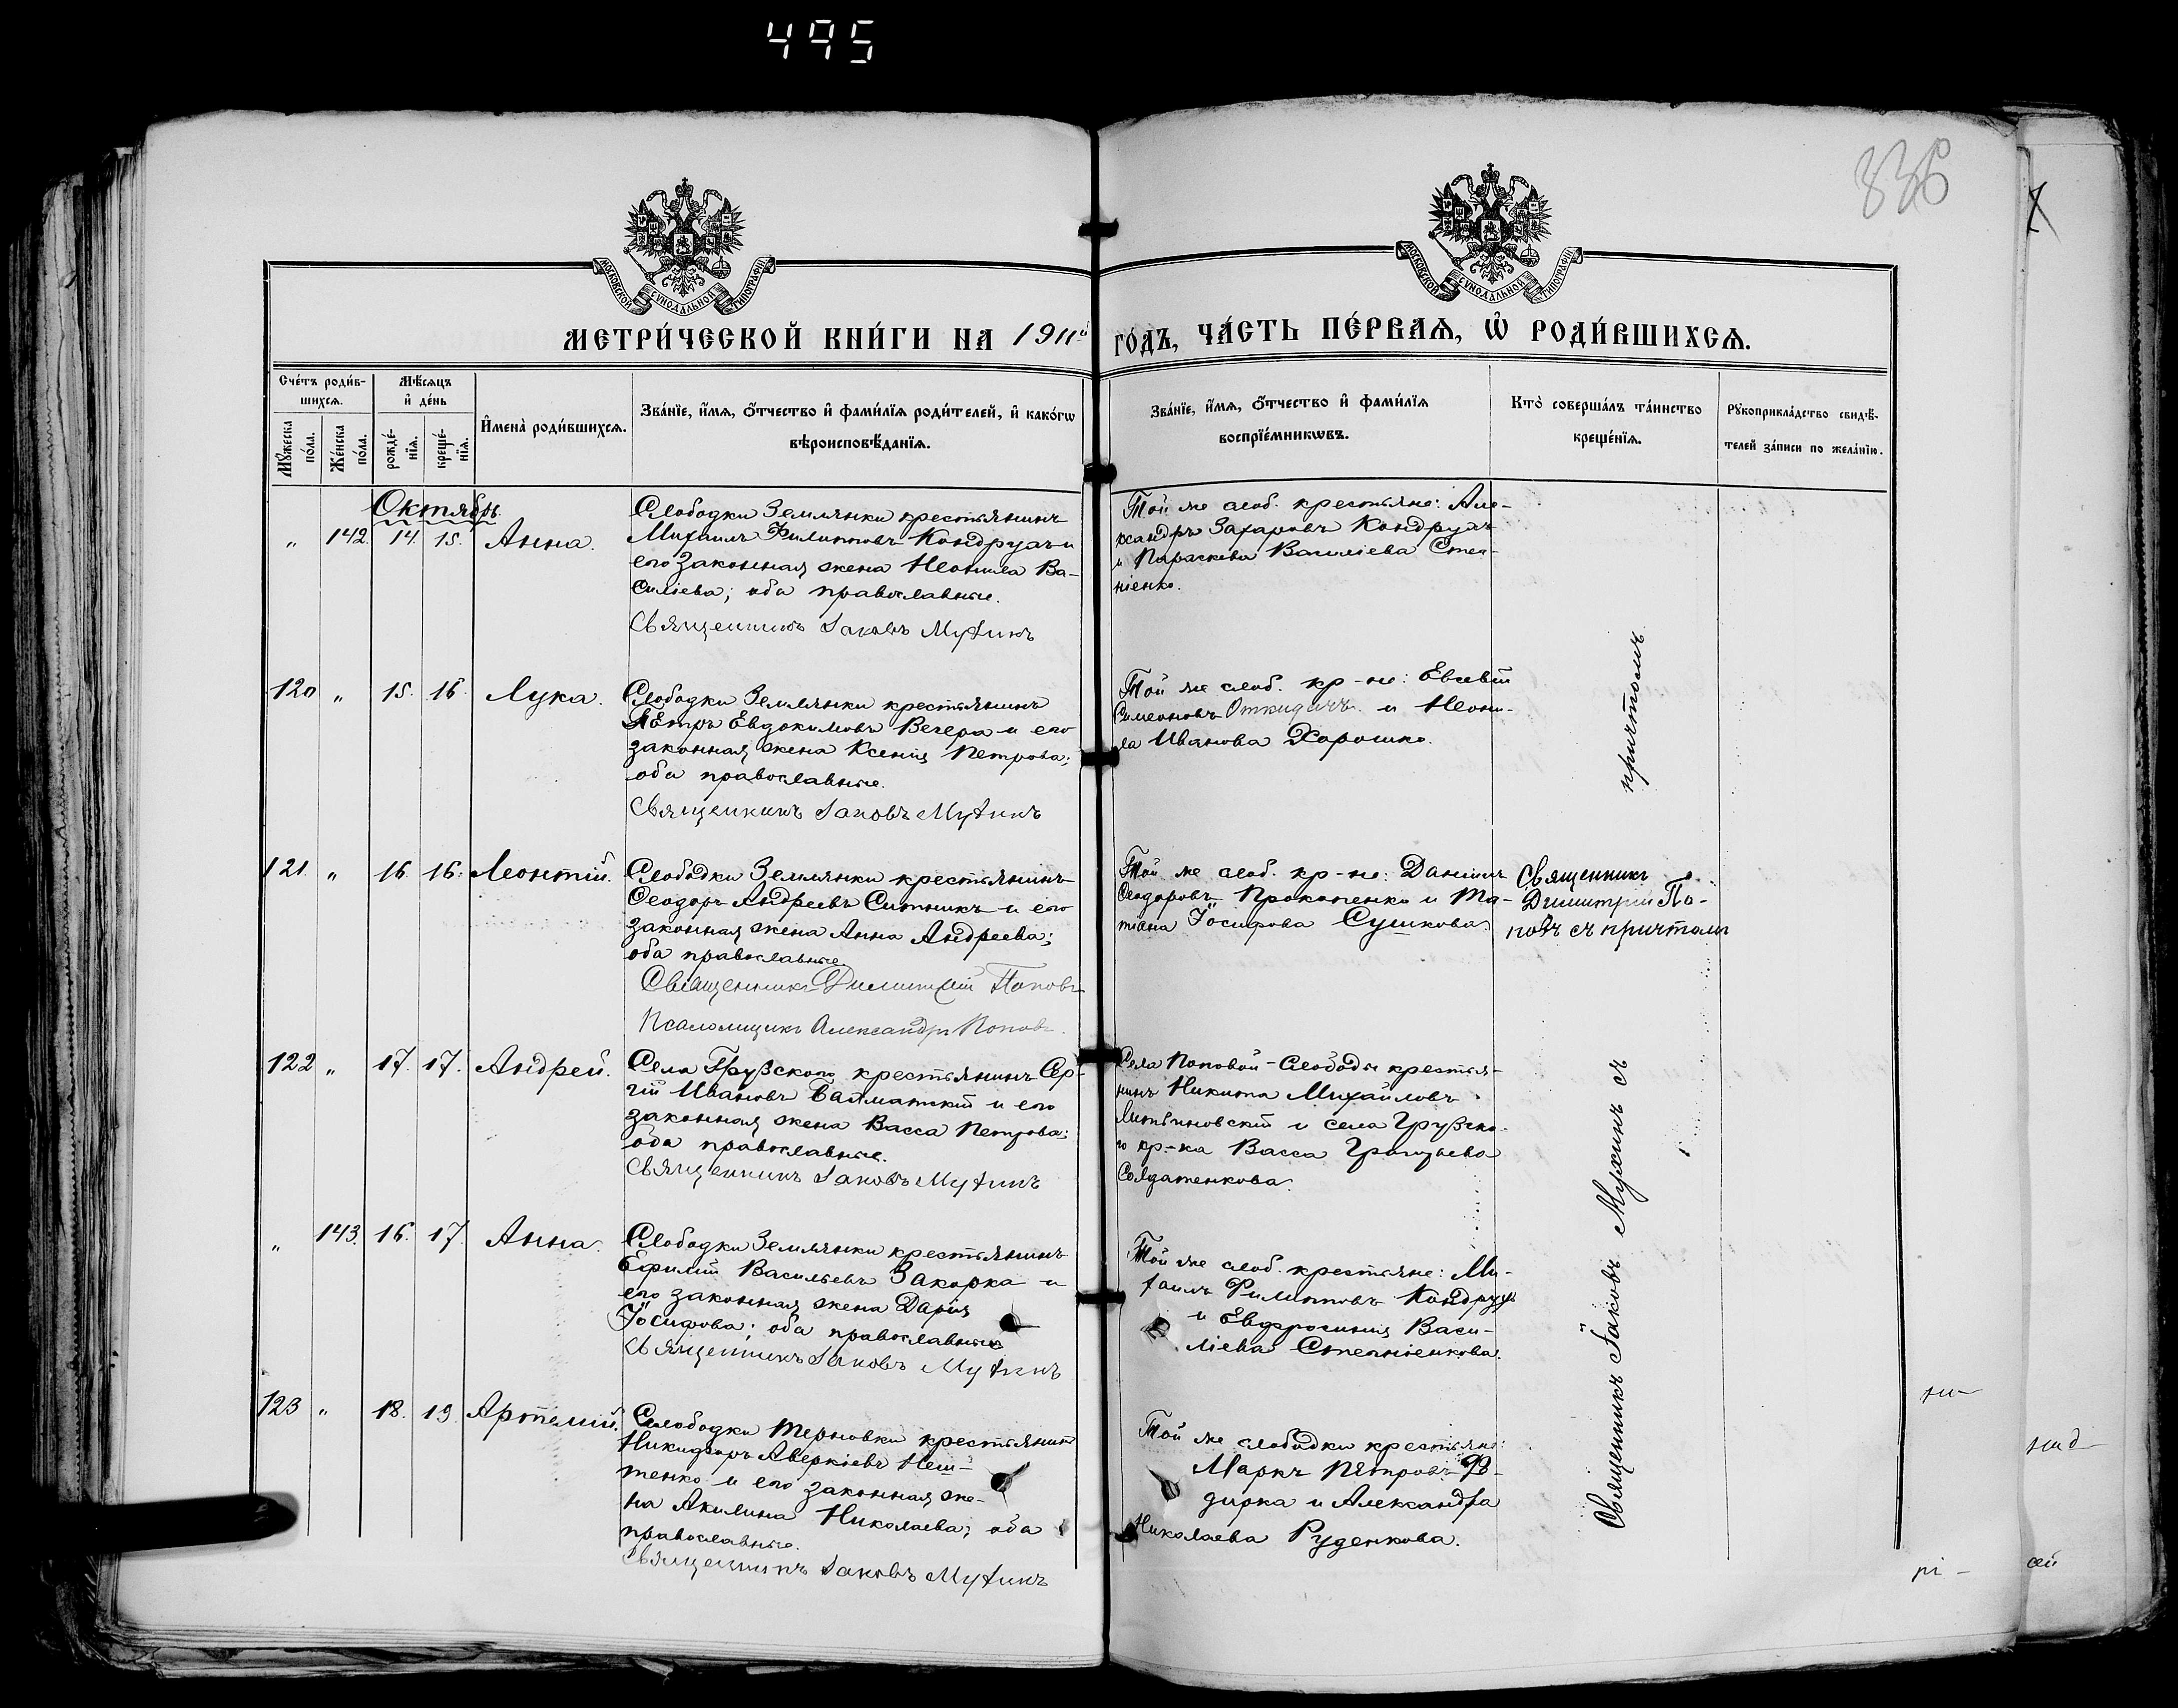 495
836
МОСКОВСКОЙ СУНОДАЛЬНОЙ ТИПОГРАФІИ
МОСКОВСКОЙ СУНОДАЛЬНОЙ ТИПОГРАФІИ
МЕТРИ́ЧЕСКОЙ КНИ́ГИ НА 1911й
ГО́ДЪ, ЧА́СТЬ ПЕ́РВАѦ, Ѡ҆ РОДИ́ВШИХСѦ.
Сче́тъ роди́в-
шихсѧ.
Мѣ́сѧцъ
и҆ де́нь
Мꙋ́жеска по́ла.
Же́нска по́ла.
рожде́-нїѧ.
креще́-нїѧ.
И҆мена̀ роди́вшихсѧ.
Зва́нїе, и҆́мѧ, ѻ҆́тчество и҆ фами́лїѧ роди́телей, и҆ како́гѡ
вѣроисповѣ́данїѧ.
Зва́нїе, и҆́мѧ, ѻ҆́тчество и҆ фами́лїѧ
воспрїе́мникѡвъ.
Кто̀ соверша́лъ та́инство
креще́нїѧ.
Рꙋкоприкла́дство свидѣ́-
телей за́писи по жела́нїю.
Октябрь.
„ 142. 14. 15. Анна.
Слободки Землянки крестьянинъ
Михаилъ Филипповъ Кондрухъ и
его законная жена Неонила Ва-
силіева; оба православные.
Священникъ Іаковъ Мухинъ
Той же слоб. крестьяне: Але-
ксандръ Захаровъ Кондрухъ
и Параскева Василіева Степ-
ніенко.
120 „ 15. 16. Лука.
Слободки Землянки крестьянинъ
Петръ Евдокимовъ Вечера и его
законная жена Ксенія Петрова;
оба православные.
Священникъ Іаковъ Мухинъ
Той же слоб. кр-не: Евсевій
Симеоновъ Откидачъ и Неони-
ла Иванова Хорошко.
121. „ 16. 16. Леонтій.
Слободки Землянки крестьянинъ
Ѳеодоръ Андреевъ Ситникъ и его
законная жена Анна Андреева;
оба православные.
Священникъ Димитрій Поповъ
Псаломщикъ Александръ Поповъ.
Той же слоб. кр-не: Даніилъ
Ѳеодоровъ Прокопенко и Та-
тіана Іосифова Сушкова.
Священникъ
Димитрій По-
повъ съ причтомъ
122 „ 17. 17. Андрей.
Села Грузского крестьянинъ Сер-
гій Ивановъ Балматскій и его
законная жена Васса Петрова;
оба православные.
Священникъ Іаковъ Мухинъ
Села Поповой-Слободы крестья-
нинъ Никита Михайловъ
Литвиновскій и села Грузско-
го кр-ка Васса Григорьева
Солдатенкова.
„ 143. 16. 17. Анна.
Слободки Землянки крестьянинъ
Ефимій Васильевъ Закорка и
его законная жена Дарія
Іосифова; оба православные
Священникъ Іаковъ Мухинъ
Той же слоб. крестьяне: Ми-
хаилъ Филипповъ Кондрухъ
и Евфросинія Васи-
ліева Степніенкова.
123 „ 18. 19. Артемій.
Слободки Терновки крестьянинъ
Никифоръ Аверкіевъ Неш-
тенко и его законная же-
на Акилина Николаева; оба
православные.
Священникъ Іаковъ Мухинъ
Той же слободки крестьяне:
Маркъ Петровъ Ѳе-
дирка и Александра
Николаева Руденкова.
Священникъ Іаковъ Мухинъ съ
причтомъ